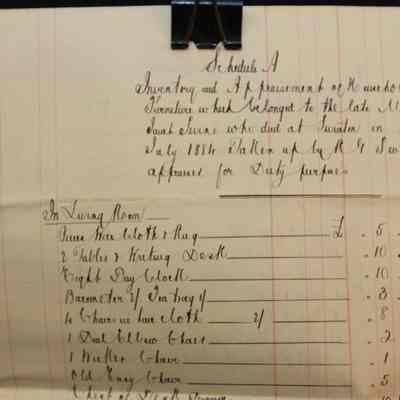 Schedule A
Inventory and Appraisement of Househo
Furniture which belonged to the late M
who died at Swinton in
July 1884 Taken up by R G
appraiser for Duty purpose
In Living Room
Piece Cloth & Rug £ . 5
2 Tables & Writing Desk . 10
Eight Day Clock . 10
Barometer 2/ Tea tray 1/ . 3
4 Chairs in hair cloth 2/ . 8
1 Dial Elbow Chair . 2
1 Wicker Chair . 1
Old Easy Chair . 5
Chest of